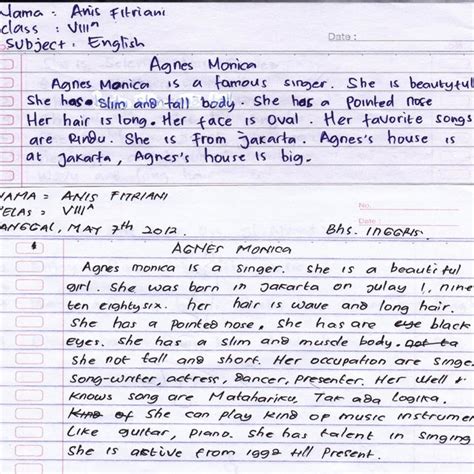 Nama : Anis Fitriani
class : VIII A
Subject : English
Date :
Agnes Monica
Agnes Monica is a famous singer. She is beautyful
She has slim and tall body. She has a pointed nose
Her hair is long. Her face is oval. Her favorite songs
are Rindu. She is from Jakarta. Agnes's house is
at Jakarta, Agnes's house is big.
NAMA = ANIS FITRIANI
KELAS = VIII A
TANGGAL, MAY 7th 2012.
No.
Date :
Bhs. INGGRIS.
AGNES MONICA
Agnes monica is a singer. She is a beautiful
girl. She was born in Jakarta on Julay 1, nine
ten eighty six. her hair is wave and long hair.
She has a pointed nose, She has are eye black
eyes. She has a slim and muscle body. not ta
She not tall and short. Her occupation are singe
song-writer, actress, dancer, presenter. Her well
knows song are Matahariku, Tak ada logika.
Kind of She can play kind of music instrumen
Like guitar, piano. She has talent in singing
She is active from 1992 till Present.